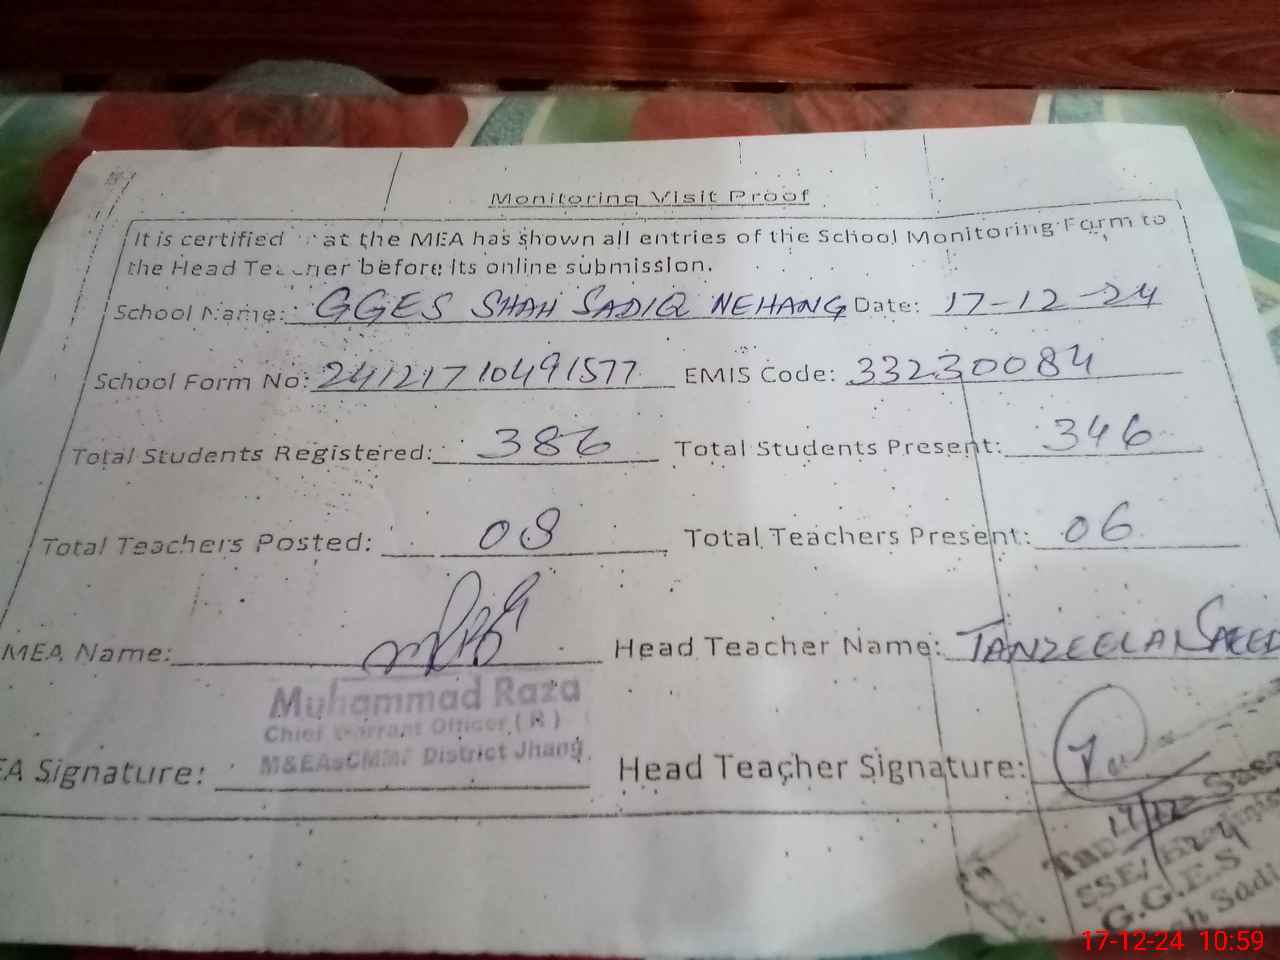 Monitoring Visit Proof
It is certified at the MEA has shown all entries of the School Monitoring Form to
the Head Teacher before its online submission.
School Name: GGES SHAH SADIQ NEHANG Date: 17-12-24
School Form No: 24121710491577 EMIS Code: 33230084
Total Students Registered: 386 Total Students Present: 346
Total Teachers Posted: 08 Total Teachers Present: 06
MEA Name: Head Teacher Name: TANZEELA SAEED
Muhammad Raza
Chief Warrant Officer (R)
M&EAs CMMF District Jhang
EA Signature: Head Teacher Signature:
17/12
SSE/
G.G.E.S
Sadi
17-12-24 10:59